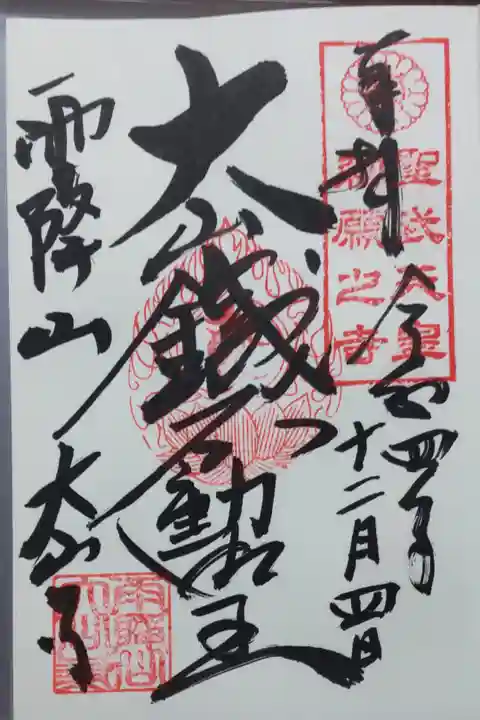 奉拝 令和四年
十二月四日
聖武天皇
勅願之寺
大山鐵不動明王
雨降山 大山寺